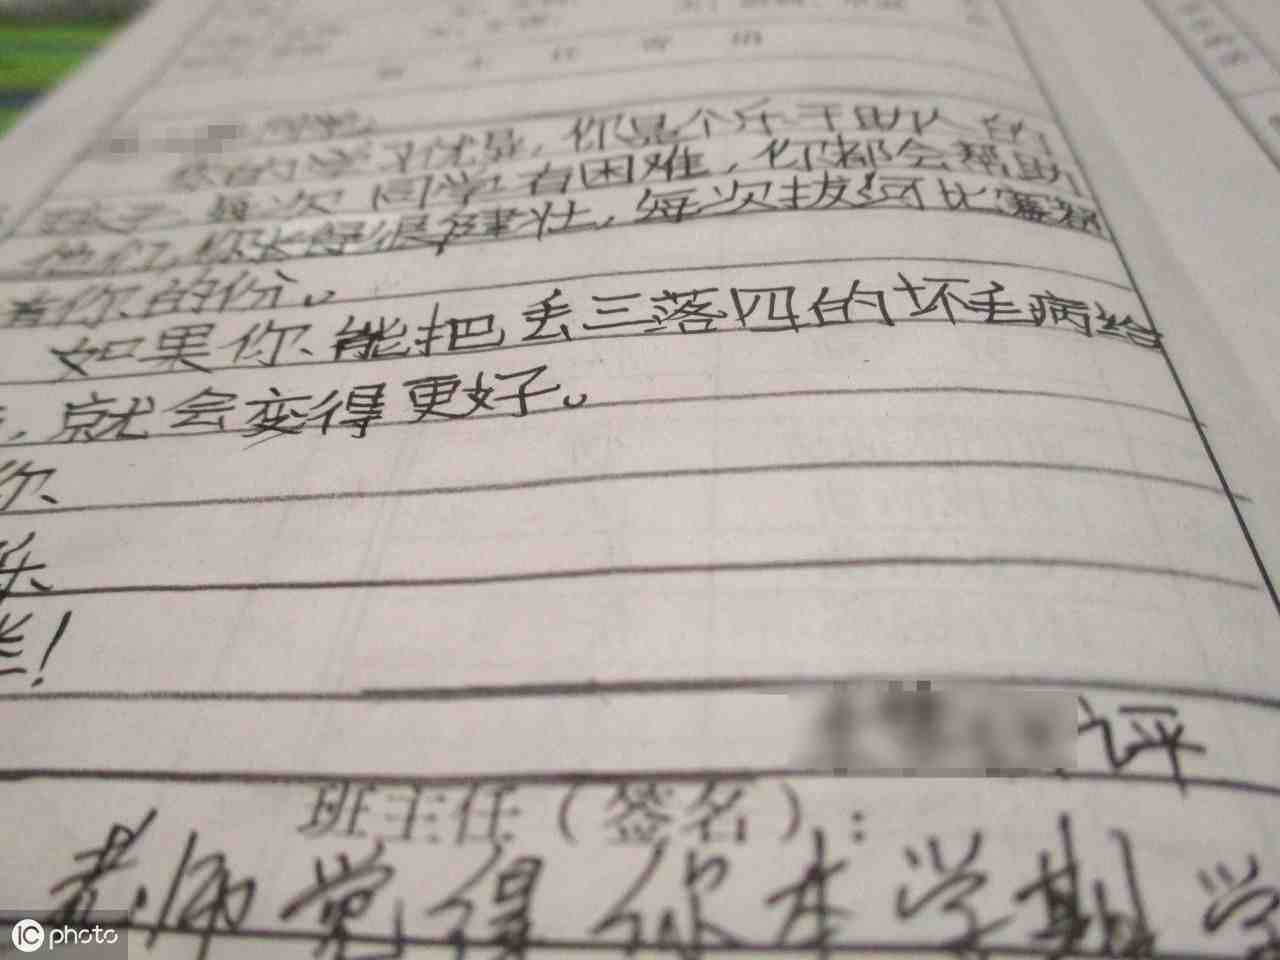 你的学习优异，你是个乐于助人的
孩子，每次同学有困难，你都会帮助
他们，你长得很健壮，每次拔河比赛都
有你的份。
如果你能把丢三落四的坏毛病给
，就会变得更好。
你
乐
！
评
班主任（签名）：
老师觉得你本学期学
iC photo